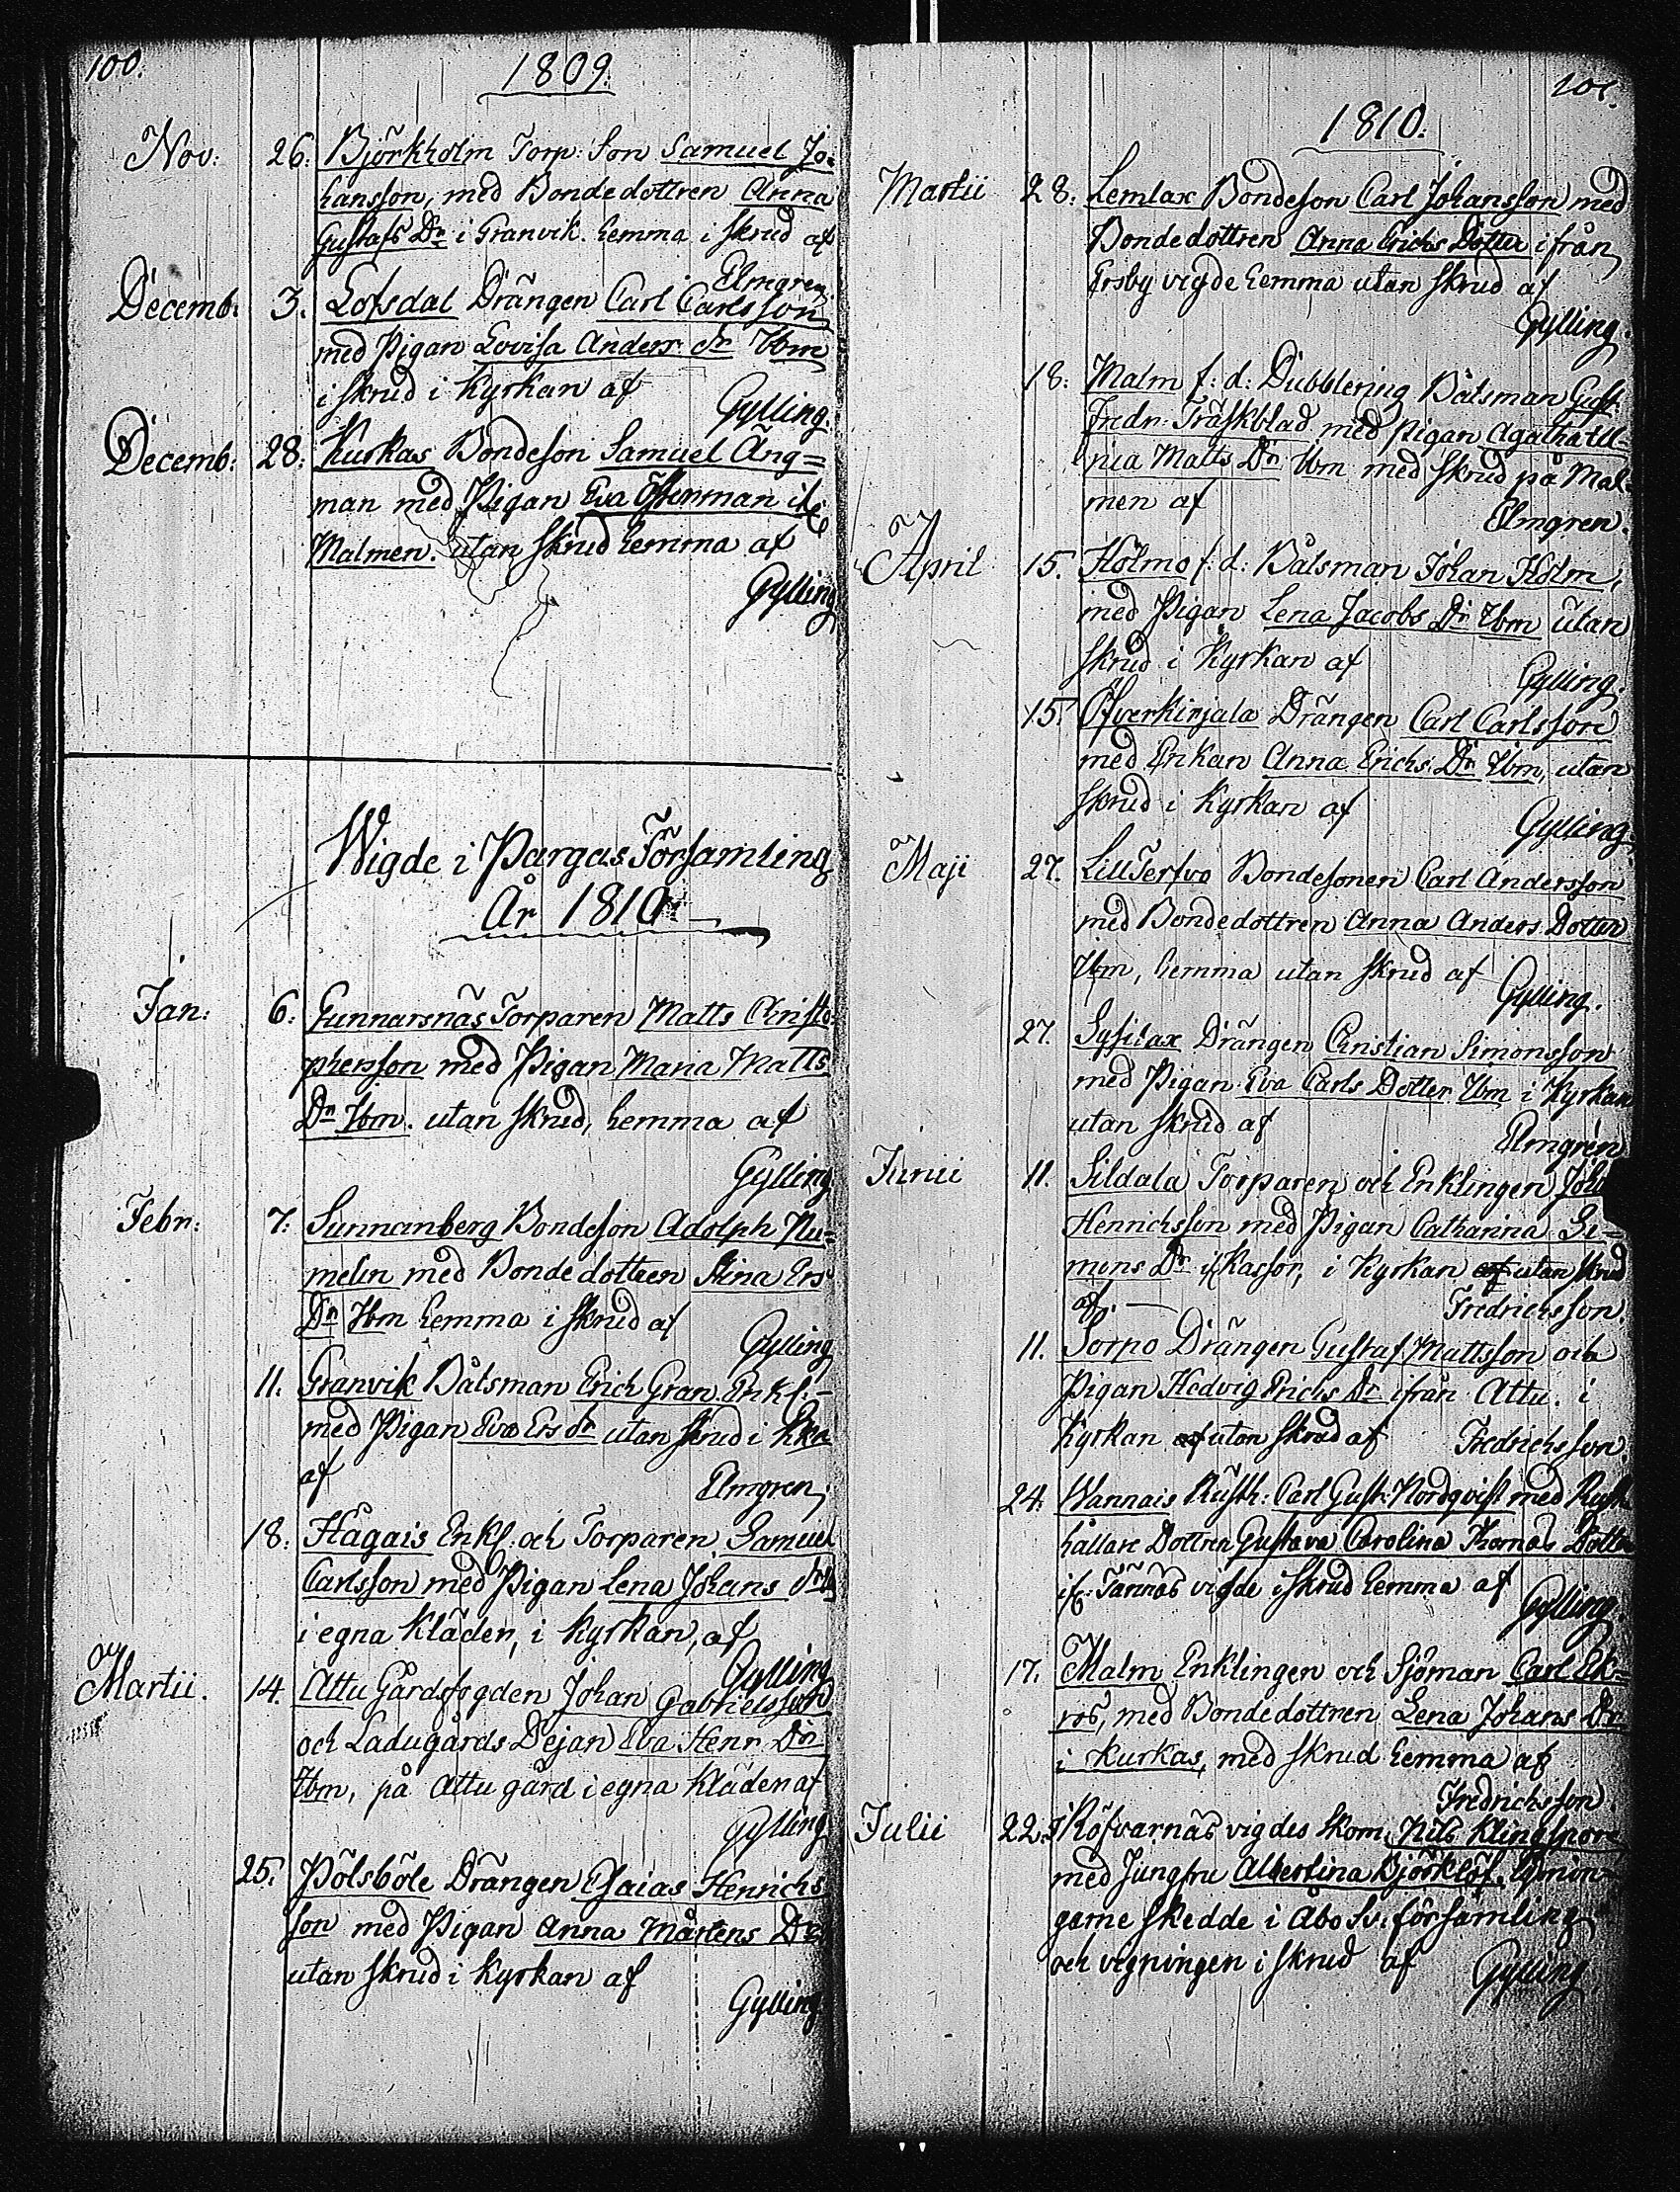 100.
1809.
Nov: 26. Björkholm Torp: Son Samuel Jo-
hansson, med Bondedottren Anna
Gustafs Dr i Granvik. hemma i skrud af
Elmgren
Decemb: 3. Lofsdal Drängen Carl Carlsson
med Pigan Lovisa Anders: dr Ibm
i skrud i Kyrkan af
Gylling.
Decemb: 28: Kurkas Bondeson Samuel Äng=
man med Pigan Eva Österman
Malmen. utan skrud hemma af
Gylling
Wigde i Pargas Församling
År 1810
Jan: 6: Gunnarsnäs Torparen Matts Christo-
phersson med Pigan Maria Matts
Dr Ibm. utan skrud, hemma af
Gylling
Febr: 7: Sunnanberg Bondeson Adolph Nu=
melin med Bondedottren Stina Ers
Dr Ibm hemma i skrud af
Gylling
11. Granvik Båtsman Erich Gran Enkl:-
med Pigan Eva Ers dr utan skrud i Kka
af
Elmgren
18. Hågais Enkl: och Torparen Samuel
Carlsson med Pigan Lena Johans dr
i egna kläder, i Kyrkan, af
Gylling
Martii. 14. Attu Gårdsfogden Johan Gabrielsson
och Ladugårds Dejan Eva Henr. Dr
Ibm, på Attu gård i egna kläder af
Gylling
25. Pölsböle Drängen Esaias Henrichs
son med Pigan Anna Mårtens Dr
utan skrud i Kyrkan af
Gylling
101.
1810.
Martii 28. Lemlax Bondeson Carl Johansson med
Bondedottren Anna Erichs Dotter ifrån
Ersby vigde hemma utan skrud af
Gylling.
18. Malm f: d: Dubblering Båtsman Gust.
Fredr. Träskblad med pigan Agatha
Matts Dr Ibm med skrud på Mal-
men af
Elmgren.
April 15. Holmo f: d: Båtsman Johan Holm,
med Pigan Lena Jacobs Dr Ibm utan
skrud i Kyrkan af
Gylling.
15. Öfverkirjala Drängen Carl Carlsson
med Enkan Anna Erichs Dr Ibm, utan
skrud i Kyrkan af
Gylling.
Maji 27. LillTerfvo Bondesonen Carl Andersson
med Bondedottren Anna Anders Dotter
Ibm, hemma utan skrud af
Gylling.
27. Sysilax Drängen Christian Simonsson
med Pigan Eva Carls Dotter Ibm i Kyrkan
utan skrud af
Elmgren
Junii 11. Sildala Torparen och Enklingen
Henrichsson med Pigan Catharina Si=
mons Dr if: Kassor, i Kyrkan af utan skrud
af.
Fredrichsson.
11. Sorpo Drängen Gustaf Mattsson och
Pigan Hedvig Erichs Dr ifrån Attu. i
Kyrkan af utan skrud af Fredrichsson.
24. Wannais Rusth: Carl Gust: Nordqvist med Rust
hållare Dottren Gustava Carolina Thomas Dotter
if: Tärnäs vigde i skrud hemma af
Gylling
17. Malm Enklingen och Sjöman Carl Ek=
ros, med Bondedottren Lena Johans Dr
i Kurkas, med skrud hemma af
Fredrichsson.
Julii 22. I Röfvarnäs vigdes skom. Nils Klingspore
med Jungfru Albertina Björklöf. Lysnin-
garne skedde i Åbo Sv: församling
och vigningen i skrud af Gylling.